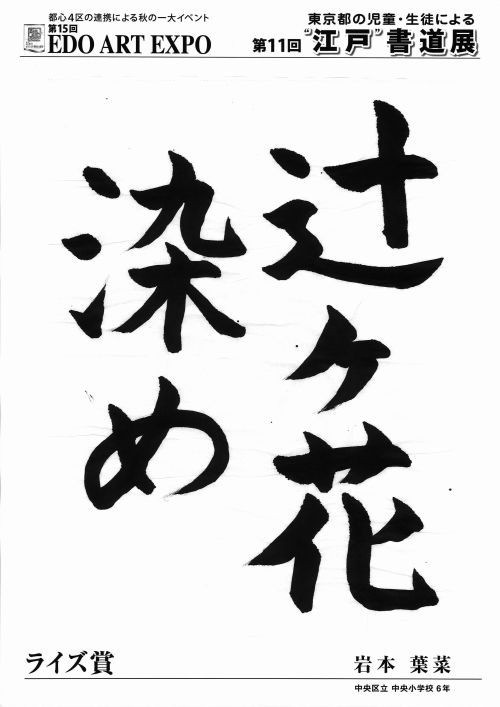 都心4区の連携による秋の一大イベント
第15回
EDO ART EXPO
東京都の児童・生徒による
第11回 "江戸"書道展
辻ヶ花
染め
ライズ賞
岩本 葉菜
中央区立 中央小学校 6年